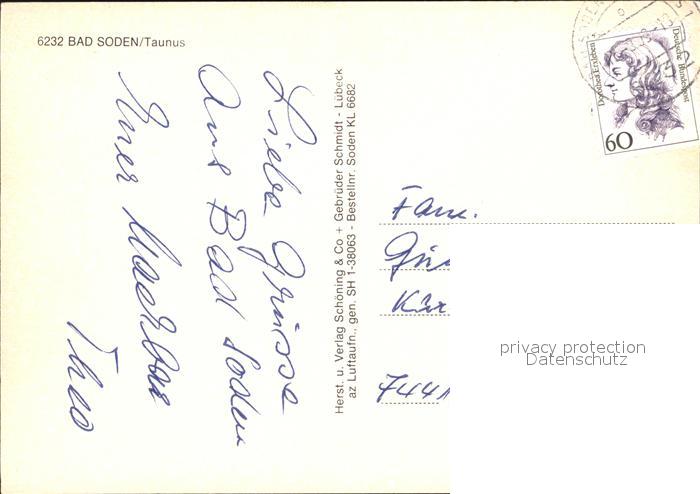 6232 BAD SODEN/Taunus
Liebe Grüsse
Aus Bad Soden
Euer Nachbar
Theo
Herst. u. Verlag Schöning & Co + Gebrüder Schmidt - Lübeck
az Luftaufn., gen. SH 1-38063 - Bestellnr. Soden KL 6682
Dorothea Erxleben
Deutsche Bundespost
60
Fam.
744
privacy protection
Datenschutz